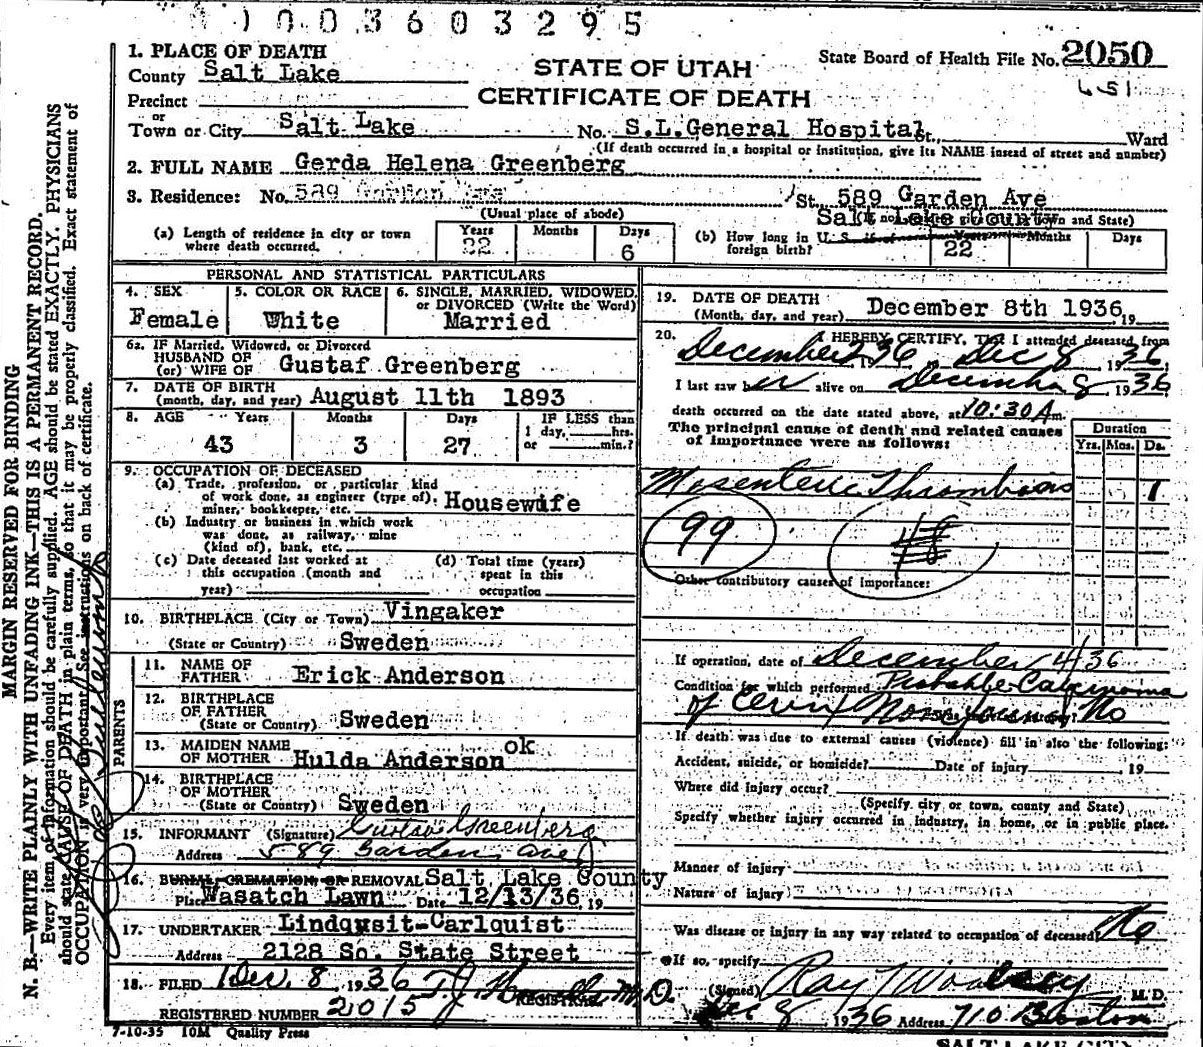 1003603295
1. PLACE OF DEATH
County Salt Lake
STATE OF UTAH
CERTIFICATE OF DEATH
State Board of Health File No. 2050
Precinct
or
Town or City Salt Lake No. S.L.General Hospital St., Ward
(If death occurred in a hospital or institution, give its NAME insead of street and number)
2. FULL NAME Gerda Helena Greenberg
3. Residence: No. 589 St. 589 Garden Ave
(Usual place of abode) Salt Lake County
(a) Length of residence in city or town where death occurred. Years 22 Months Days 6
(b) How long in U. S. if of foreign birth? Years 22 Months Days
PERSONAL AND STATISTICAL PARTICULARS
4. SEX Female
5. COLOR OR RACE White
6. SINGLE, MARRIED, WIDOWED, or DIVORCED (Write the Word) Married
6a. IF Married, Widowed, or Divorced
HUSBAND OF
(or) WIFE OF Gustaf Greenberg
7. DATE OF BIRTH
(month, day, and year) August 11th 1893
8. AGE Years 43 Months 3 Days 27 IF LESS than 1 day, hrs. or min.?
9. OCCUPATION OF DECEASED
(a) Trade, profession, or particular kind
of work done, as engineer (type of),
miner, bookkeeper, etc. Housewife
(b) Industry or business in which work
was done, as railway, mine
(kind of), bank, etc.
(c) Date deceased last worked at
this occupation (month and
year)
(d) Total time (years)
spent in this
occupation
10. BIRTHPLACE (City or Town) Vingaker
(State or Country) Sweden
PARENTS
11. NAME OF
FATHER Erick Anderson
12. BIRTHPLACE
OF FATHER
(State or Country) Sweden
13. MAIDEN NAME ok
OF MOTHER Hulda Anderson
14. BIRTHPLACE
OF MOTHER
(State or Country) Sweden
15. INFORMANT (Signature) Gustav Greenberg
Address 589 Gardens Ave
16. BURIAL, CREMATION OR REMOVAL Salt Lake County
Place Wasatch Lawn Date 12/13/36, 19
17. UNDERTAKER Lindqusit-Carlquist
Address 2128 So. State Street
18. FILED Dec. 8, 1936 M.D.
REGISTRAR
REGISTERED NUMBER 2015
7-10-35 10M Quality Press
19. DATE OF DEATH
(Month, day, and year) December 8th 1936, 19
20. I HEREBY CERTIFY, That I attended deceased from
December 2 36, 19 Dec 8, 1936
I last saw her alive on December 8, 1936
death occurred on the date stated above, at 10:30 A m.
The principal cause of death and related causes
of importance were as follows:
Duration
Yrs. Mos. Ds.
Mesenteric Thrombosis 1
99 48
Other contributory causes of importance:
If operation, date of December 4/36
Condition for which performed Probable Carcinoma
of Cervix None found No
If death was due to external causes (violence) fill in also the following:
Accident, suicide, or homicide? Date of injury 19
Where did injury occur?
(Specify city or town, county and State)
Specify whether injury occurred in industry, in home, or in public place.
Manner of injury
Nature of injury
Was disease or injury in any way related to occupation of deceased No
If so, specify
(Signed) Ray T Woolsey M. D.
Dec 8, 1936 Address 710 Boston
SALT LAKE CITY
MARGIN RESERVED FOR BINDING
N. B.—WRITE PLAINLY WITH UNFADING INK—THIS IS A PERMANENT RECORD.
Every item of information should be carefully supplied. AGE should be stated EXACTLY. PHYSICIANS
should state CAUSE OF DEATH in plain terms, so that it may be properly classified. Exact statement of
OCCUPATION is very important. See instructions on back of certificate.